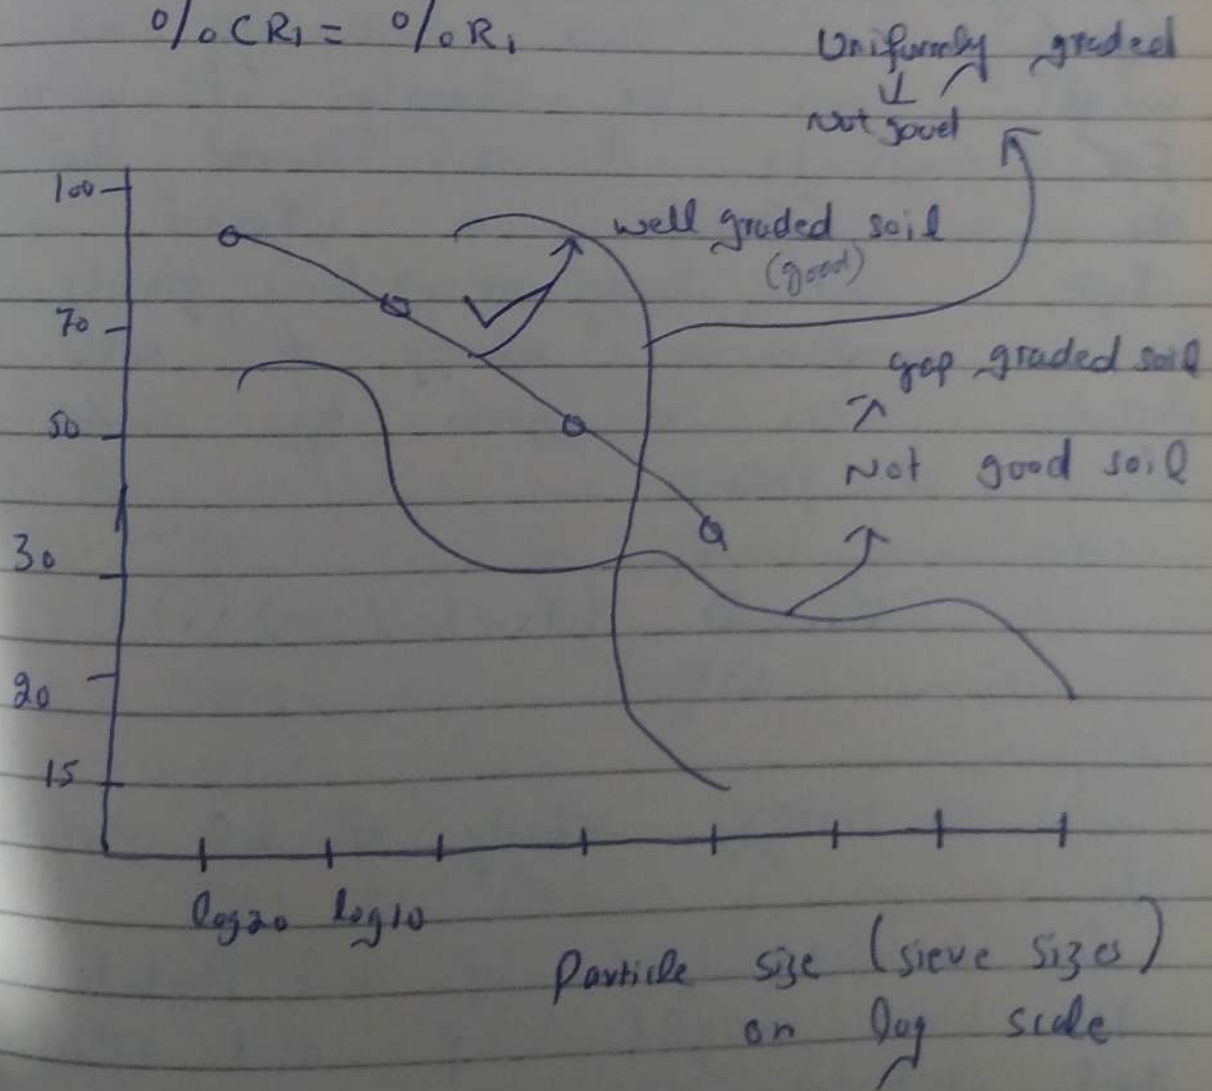 %CR₁ = %R₁
Uniformly graded
↓
Not good
100
well graded soil
(good)
70
gap graded soil
50
Not good soil
30
20
15
log20 log10
Particle size (sieve sizes)
on log scale